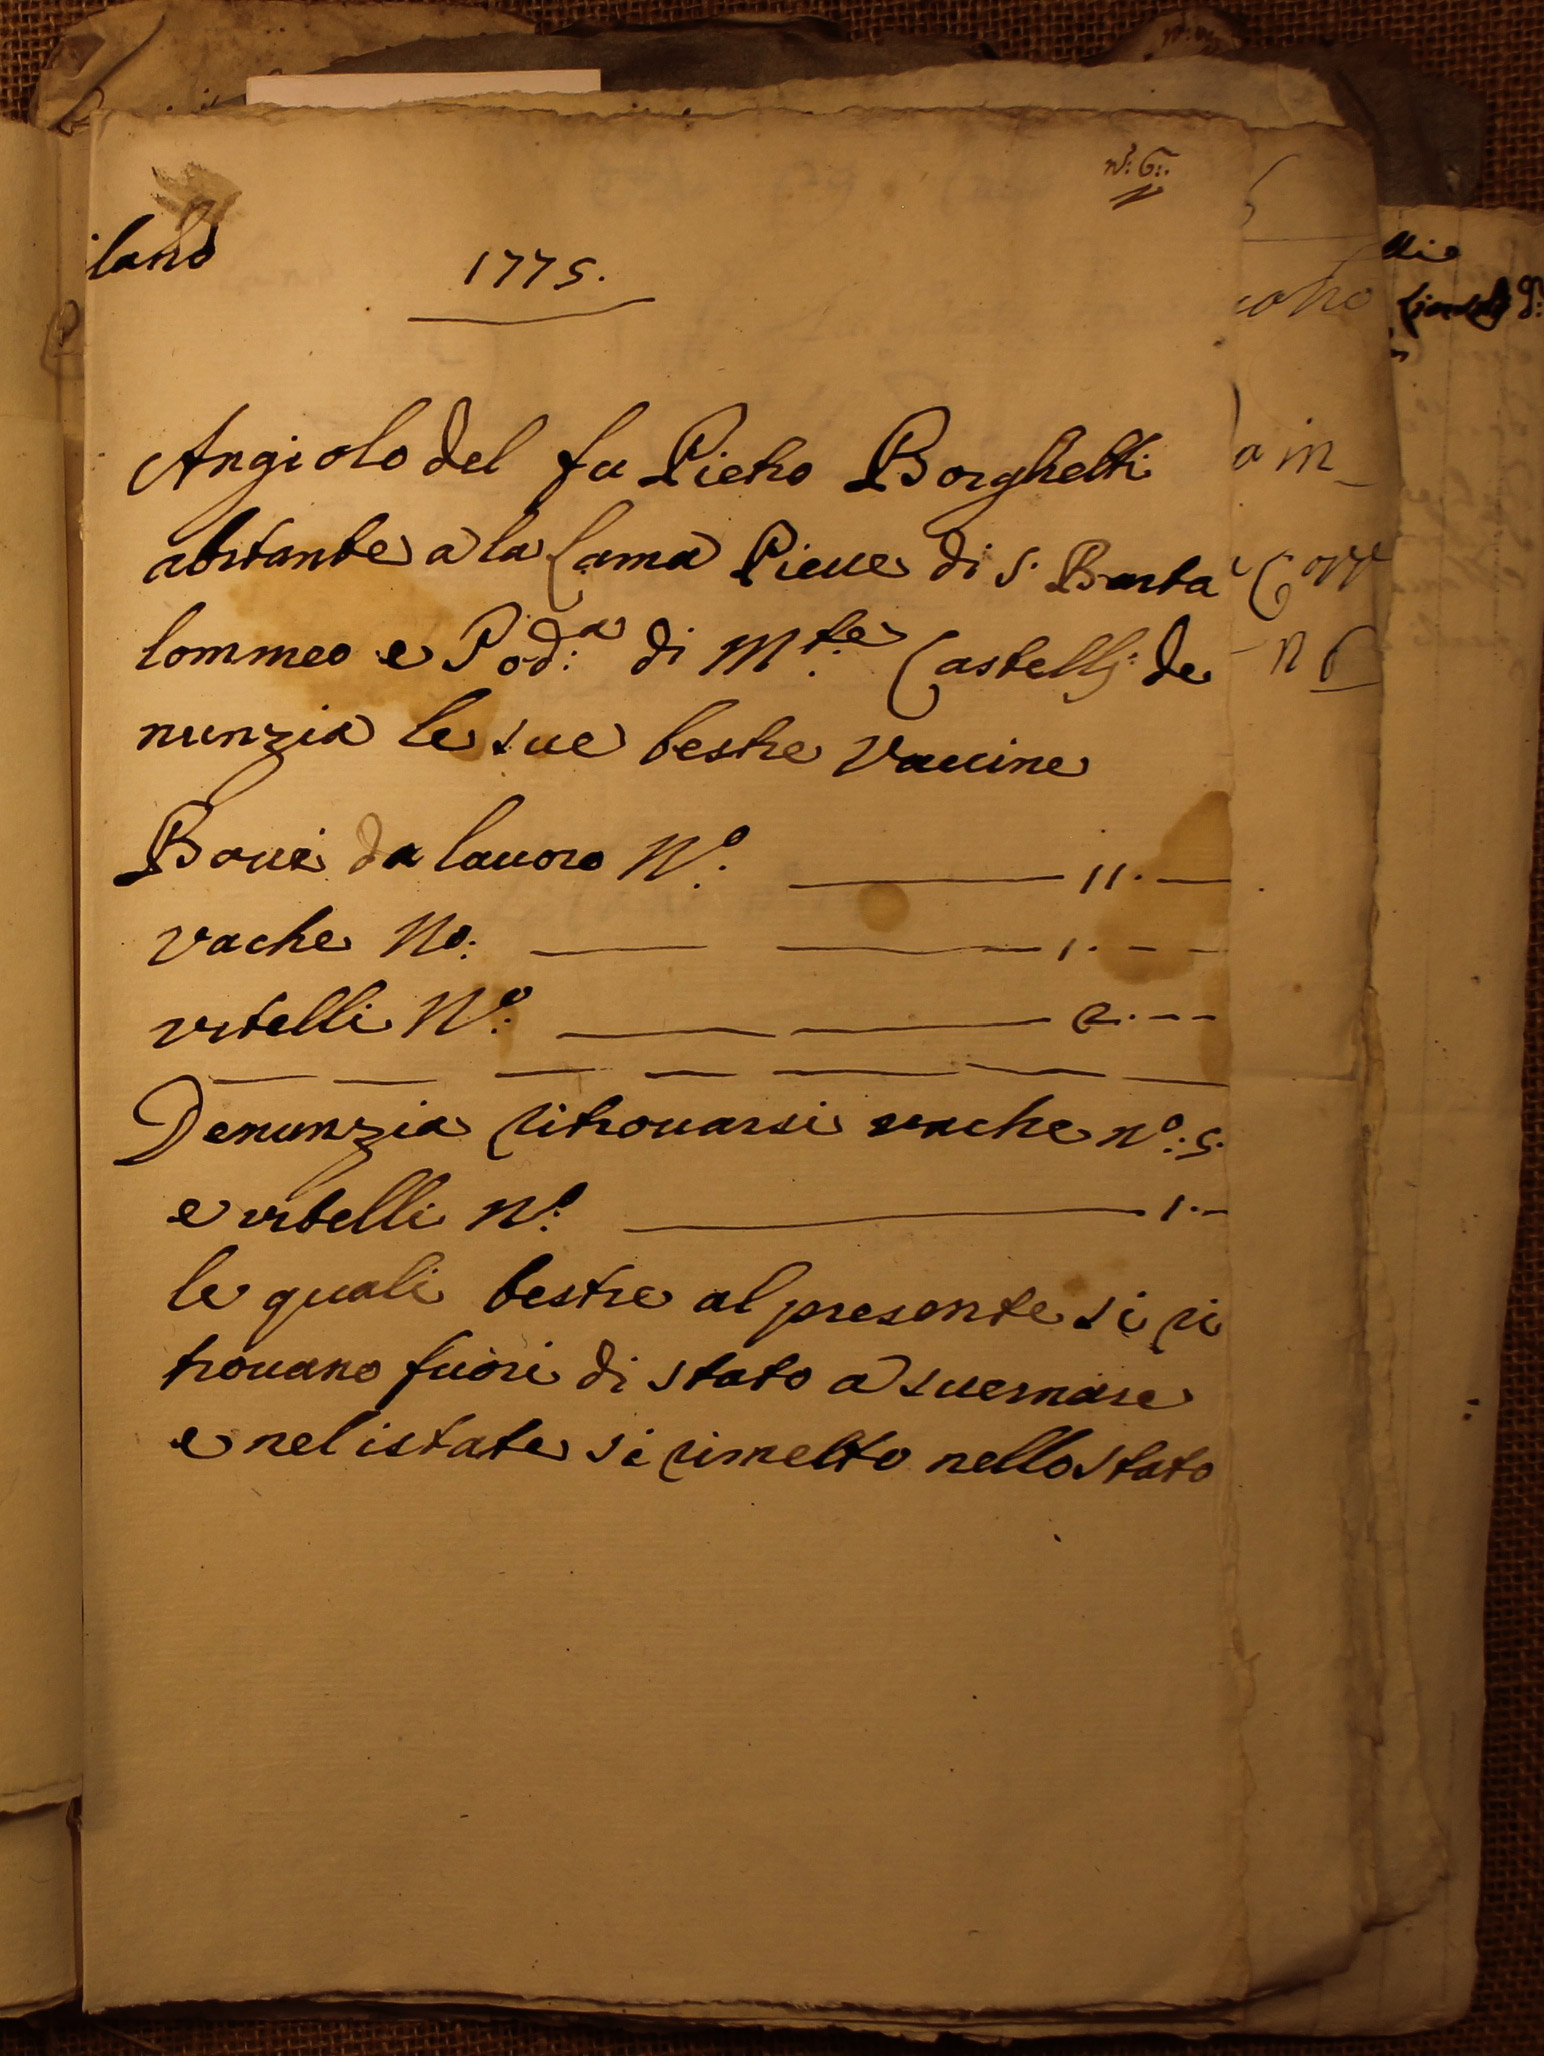 n.º 6.
1775.
Angiolo del fu Pietro Borghetti
abitante a la Lama Pieue di S. Barta
lommeo e Pod:ª di M.te Castelli: de
nunzia le sue bestie Vaccine
Boui da lauoro Nº. 11.
vache No: 1.
vitelli Nº: 2.
Denunzia ritrouarsi vache nº: 5.
e vitelli nº: 1.
le quali bestie al presente si ri
trouano fuori di stato a suernare
e nel istate si rimetto nello stato